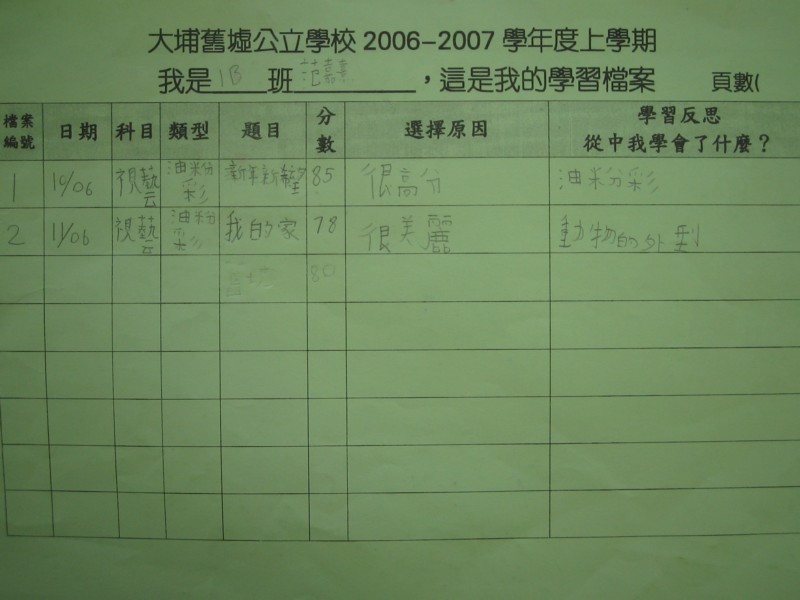 大埔舊墟公立學校 2006-2007 學年度上學期
我是 1B 班 范嘉熹 ，這是我的學習檔案 頁數(
檔案編號 日期 科目 類型 題目 分數 選擇原因 學習反思 從中我學會了什麼？
1 10/06 視藝 油粉彩 新年新 85 很高分 油粉彩
2 11/06 視藝 油粉彩 我的家 78 很美麗 動物的外型
80